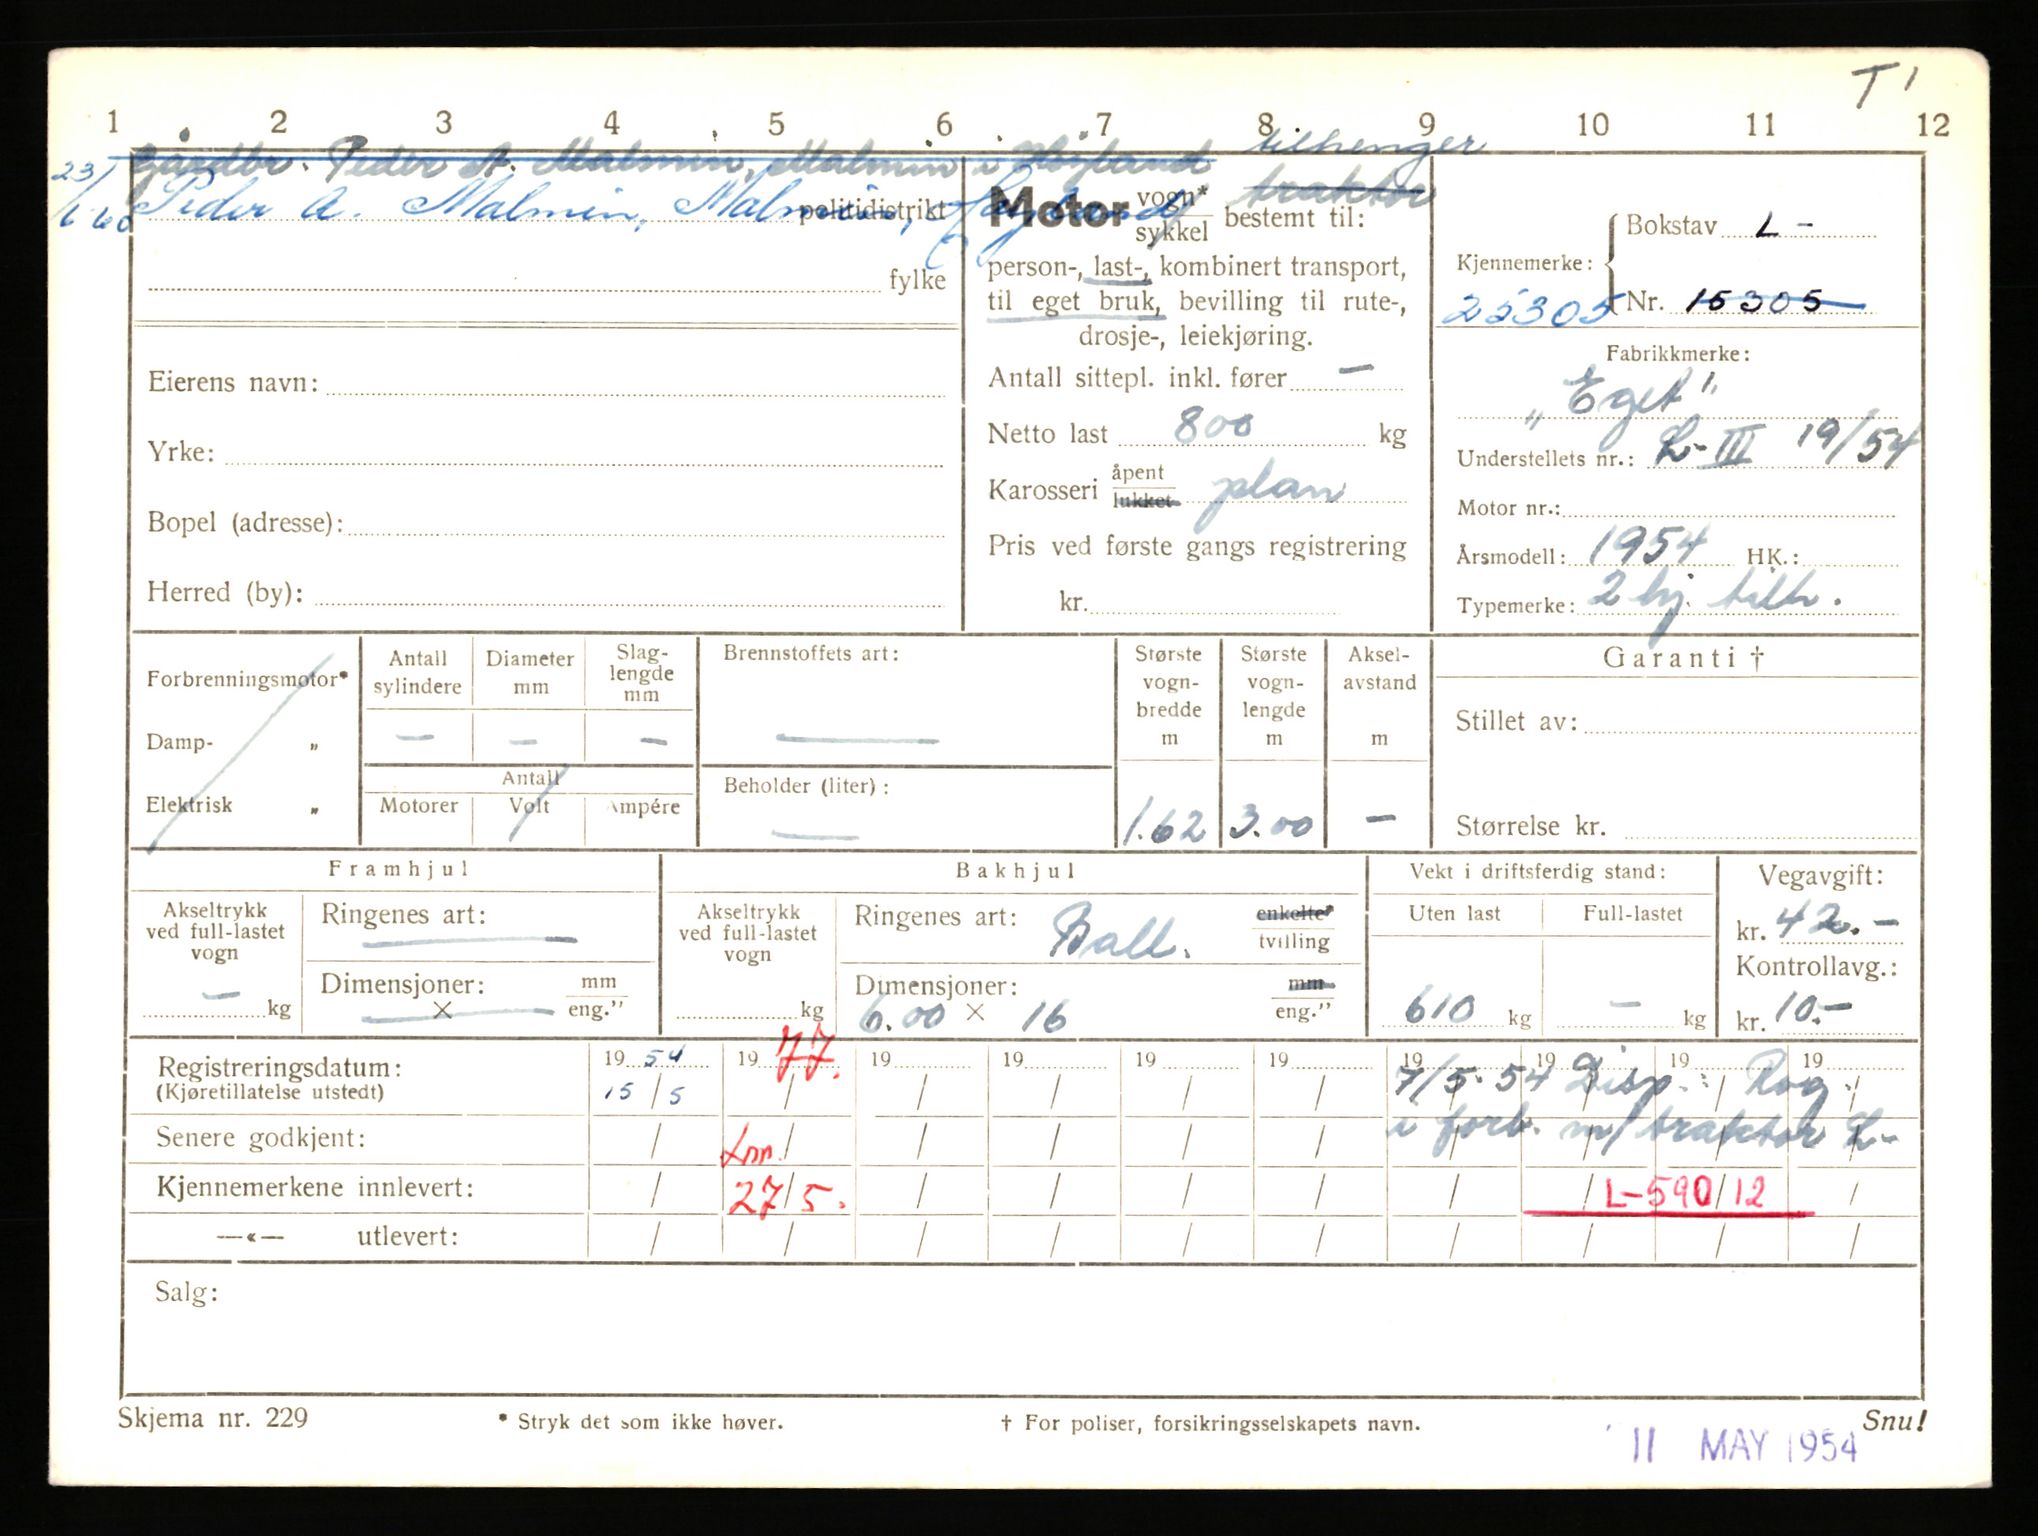 T 1
1 2 3 4 5 6 7 8 9 10 11 12
Gårdbr. Peder A. Malmin, Malmin i Høyland
23/
6 60
Peder A. Malmin, Malmin, Høyland
politidistrikt
fylke
Eierens navn:
Yrke:
Bopel (adresse):
Herred (by):
tilhenger
traktor
Motor vogn* sykkel bestemt til:
person-, last-, kombinert transport,
til eget bruk, bevilling til rute-,
drosje-, leiekjøring.
Antall sittepl. inkl. fører —
Netto last 800 kg
Karosseri åpent lukket plan
Pris ved første gangs registrering
kr.
Bokstav L -
Kjennemerke:
25305 Nr. 15305
Fabrikkmerke:
„Eget"
Understellets nr.: L-III 19/54
Motor nr.:
Årsmodell: 1954 HK.:
Typemerke: 2 hj. tilh.
Forbrenningsmotor*
Damp- „
Elektrisk „
Antall sylindere
Diameter mm
Slag-lengde mm
— — —
Antall
Motorer Volt Ampére
Brennstoffets art:
—
Beholder (liter):
—
Største vogn-bredde m
1.62
Største vogn-lengde m
3.00
Aksel-avstand m
—
Garanti †
Stillet av:
Størrelse kr.
Framhjul
Akseltrykk ved full-lastet vogn
— kg
Ringenes art: —
Dimensjoner: mm
— × — eng."
Bakhjul
Akseltrykk ved full-lastet vogn
kg
Ringenes art: Ball. enkelte* tvilling
Dimensjoner: mm
6.00 × 16 eng."
Vekt i driftsferdig stand:
Uten last Full-lastet
610 kg — kg
Vegavgift:
kr. 42.-
Kontrollavg.:
kr. 10.-
Registreringsdatum: 19 54 19 77. 19 19 19 19 19 19 19 19
(Kjøretillatelse utstedt) 15/5 / / / / / / / / /
7/5. 54 Disp.: Rog.
i forb. m/traktor L-
Senere godkjent: /
Kjennemerkene innlevert: / 27/5. / / / / / L-590/12 /
—«— utlevert: / / / / / / / / / /
Salg:
Skjema nr. 229
* Stryk det som ikke høver.
† For poliser, forsikringsselskapets navn.
Snu!
11 MAY 1954